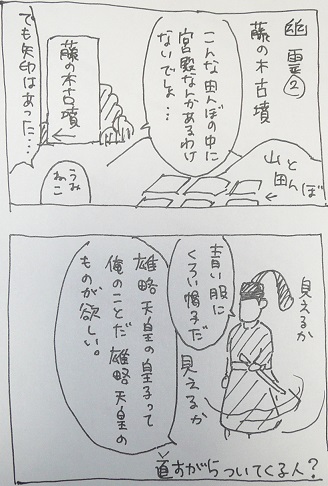 幽霊②
藤の木古墳
こんな田んぼの中に
宮殿なんかあるわけ
ないでしょ…
藤の木古墳
でも矢印はあった…
山と
田んぼ
うみ
ねこ
見えるか
青い服に
くろい帽子だ
見えるか
雄略天皇の皇子って
俺のことだ 雄略天皇の
ものが欲しい。
道すがらついてくる人?